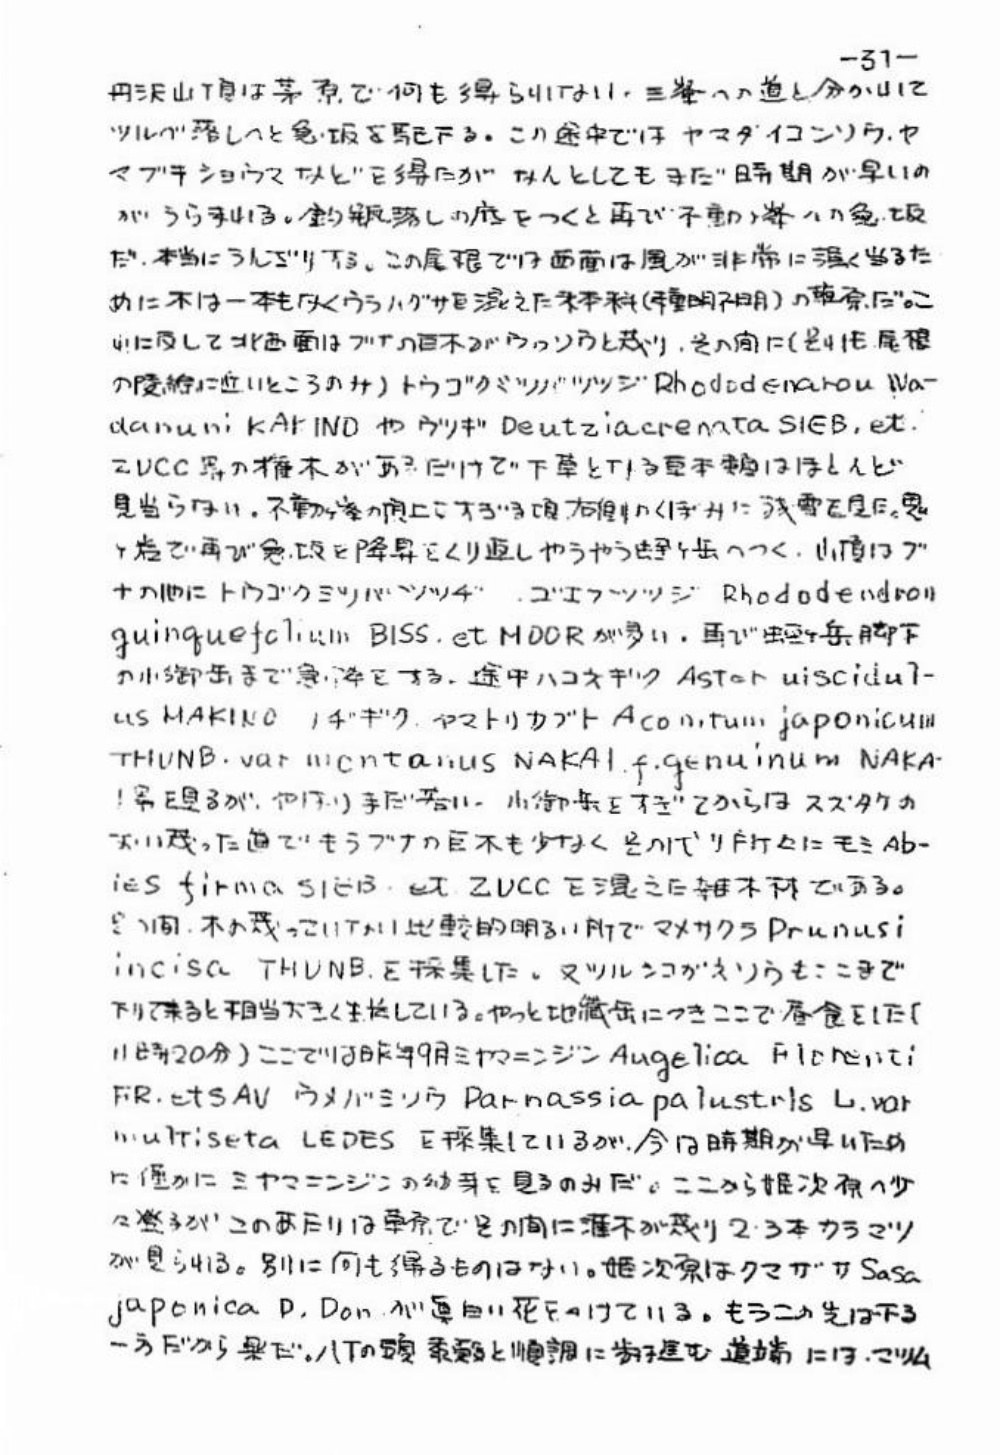 -31-
丹沢山頂は茅原で何も得られない。三峯への道と分かれて
ツルベ落しへと急坂を駈下る。この途中では ヤマダイコンソウ、ヤ
マブキショウマなどを得たが なんとしてもまだ時期が早いの
がうらまれる。釣瓶落しの底をつくと再び不動ヶ峯への急坂
だ。本当にうんざりする。この尾根では西面は風が非常に強く当るた
めに木は一本もなくウラハグサを混えた禾本科(種明不明)の草原だ。こ
れに反して北西面はブナの巨木がウッソウと茂り、その間に(それも尾根
の陵線に近いところのみ)トウゴクミツバツツジ Rhododenarou Wa-
danuni KAKINO や ウツギ Deutziacrenata SIEB, et.
ZUCC 等の権木があるだけで下草となる草本類はほとんど
見当らない。不動ヶ峯の頂上をすぎる頃右側のくぼみに残雪を見た。鬼
ヶ岩で再び急坂と降昇をくり返しやうやう蛭ヶ岳へつく。山頂はブ
ナの他にトウゴクミツバツツヂ 、ゴエフツツジ Rhododendron
guinquefolium BISS. et MOOR が多い。再び蛭ヶ岳脚下
の小御岳まで急降をする。途中ハコネギク Aster uiscidul-
us MAKINO ノヂギク、ヤマトリカブト Aconitum japonicum
THUNB. var montanus NAKAI. f. genuinum NAKA-
I 等を見るが、やはりまだ若い。小御岳をすぎてからは スズタケの
おい茂った道でもうブナの巨木も少なく その代り所々にモミ Ab-
ies firma SIEB. et. ZUCC を混えた雑木林である。
その間、木の茂っていない比較的明るい所でマメサクラ Prunusi
incisa THUNB. を採集した。又ツルシコガネソウもここまで
下りて来ると相当大きく生長している。やっと地蔵岳につきここで昼食をした(
11時20分)ここでは昨年9月ミヤマニンジン Augelica Florenti
FR. etSAV ウメバミソウ Parnassia palustrls L. var
multiseta LEDES を採集しているが、今は時期が早いため
に僅かに ミヤマニンジンの幼芽を見るのみだ。ここから姫次原へ少
々登るが このあたりは草原でその間に灌木が茂り 2・3本カラマツ
が見られる。別に何も得るものはない。姫次原はクマザサ Sasa
japonica D. Don が真白い花をつけている。もうこの先は下る
一方だから楽だ。八丁の頭 と順調に歩を進む 道端 には、マツム